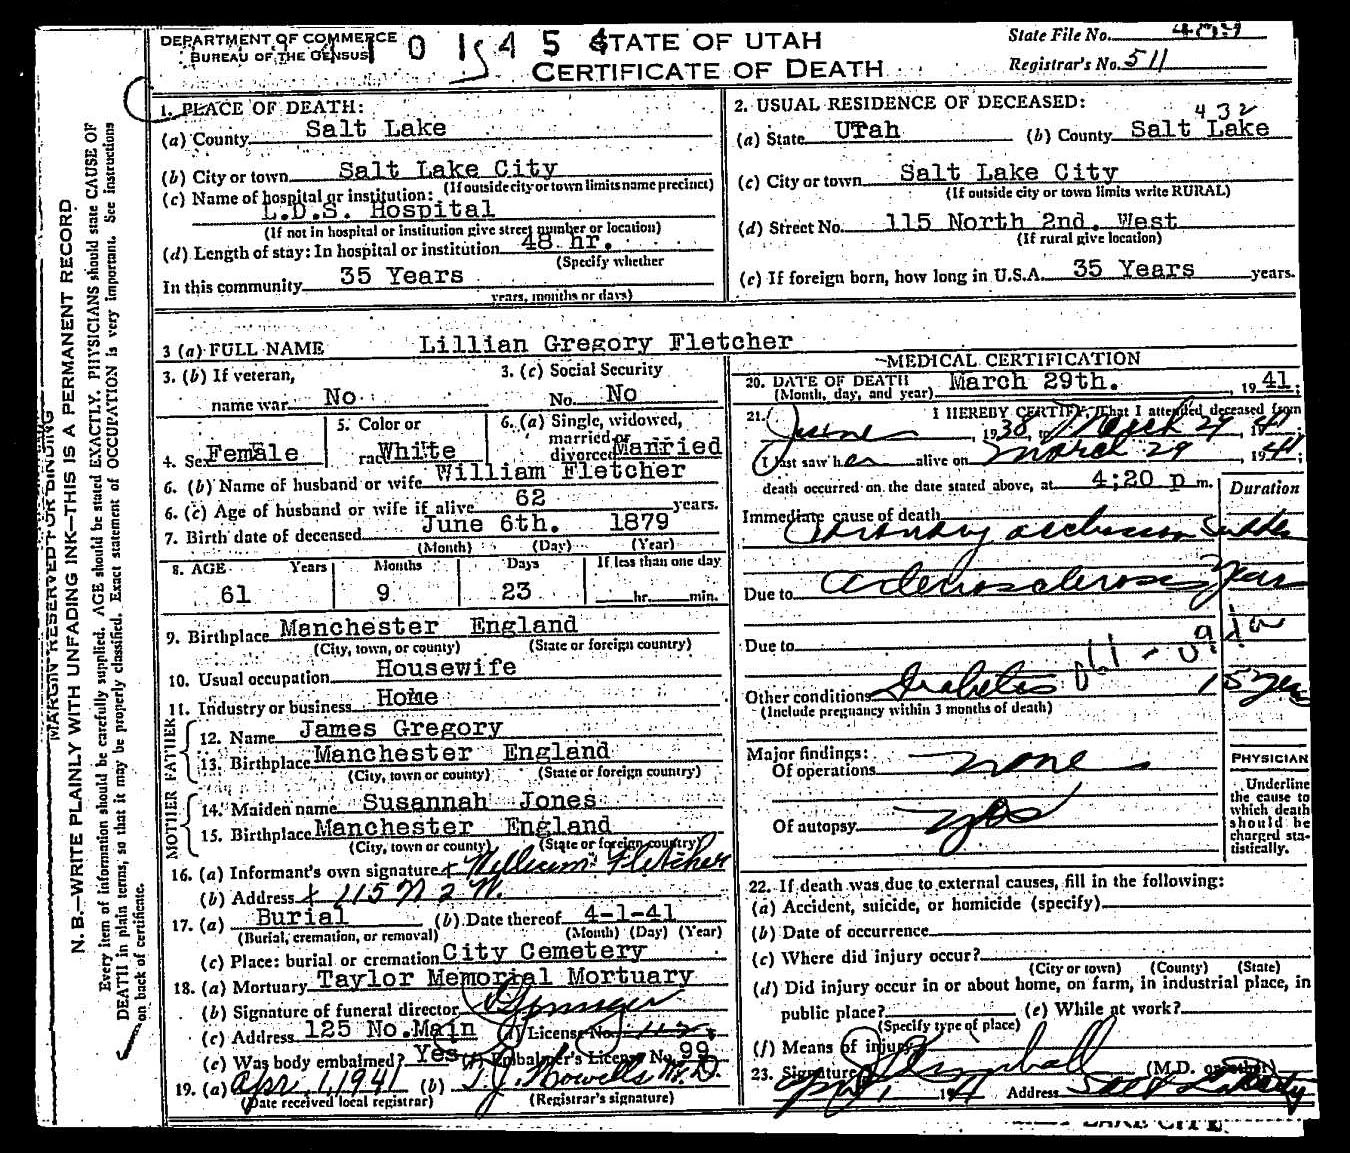 DEPARTMENT OF COMMERCE
BUREAU OF THE CENSUS
STATE OF UTAH
CERTIFICATE OF DEATH
State File No.
Registrar's No. 511
MARGIN RESERVED FOR BINDING
N. B.—WRITE PLAINLY WITH UNFADING INK—THIS IS A PERMANENT RECORD
Every item of information should be carefully supplied. AGE should be stated EXACTLY. PHYSICIANS should state CAUSE OF
DEATH in plain terms, so that it may be properly classified. Exact statement of OCCUPATION is very important. See instructions
on back of certificate.
1. PLACE OF DEATH:
(a) County Salt Lake
(b) City or town Salt Lake City
(If outside city or town limits name precinct)
(c) Name of hospital or institution:
L.D.S. Hospital
(If not in hospital or institution give street number or location)
(d) Length of stay: In hospital or institution 48 hr.
(Specify whether
In this community 35 Years
years, months or days)
2. USUAL RESIDENCE OF DECEASED:
432
(a) State Utah (b) County Salt Lake
(c) City or town Salt Lake City
(If outside city or town limits write RURAL)
(d) Street No. 115 North 2nd. West
(If rural give location)
(e) If foreign born, how long in U.S.A. 35 Years years.
3 (a) FULL NAME Lillian Gregory Fletcher
3. (b) If veteran,
name war No
3. (c) Social Security
No. No
4. Sex Female
5. Color or
race White
6. (a) Single, widowed,
married or
divorced Married
6. (b) Name of husband or wife William Fletcher
6. (c) Age of husband or wife if alive 62 years.
7. Birth date of deceased June 6th. 1879
(Month) (Day) (Year)
8. AGE Years Months Days If less than one day
61 9 23 hr. min.
9. Birthplace Manchester England
(City, town, or county) (State or foreign country)
10. Usual occupation Housewife
11. Industry or business Home
FATHER
12. Name James Gregory
13. Birthplace Manchester England
(City, town or county) (State or foreign country)
MOTHER
14. Maiden name Susannah Jones
15. Birthplace Manchester England
(City, town or county) (State or foreign country)
16. (a) Informant's own signature x William Fletcher
(b) Address x 115 N 2 W.
17. (a) Burial (b) Date thereof 4-1-41
(Burial, cremation, or removal) (Month) (Day) (Year)
(c) Place: burial or cremation City Cemetery
18. (a) Mortuary Taylor Memorial Mortuary
(b) Signature of funeral director
(c) Address 125 No. Main (d) License No.
(e) Was body embalmed? Yes (f) Embalmer's License No. 99
19. (a) Apr. 1, 1941 (b) T. J. Howells M.D.
(Date received local registrar) (Registrar's signature)
MEDICAL CERTIFICATION
20. DATE OF DEATH March 29th. , 1941;
(Month, day, and year)
21. I HEREBY CERTIFY, That I attended deceased from
June , 1938, to March 29, 1941
I last saw her alive on March 29, 1941;
death occurred on the date stated above, at 4:20 p m.
Duration
Immediate cause of death
Coronary occlusion Sudden
Due to Arteriosclerosis Years
Due to
Other conditions Diabetes 15 yrs
(Include pregnancy within 3 months of death)
Major findings:
Of operations none
Of autopsy yes
PHYSICIAN
Underline
the cause to
which death
should be
charged sta-
tistically.
22. If death was due to external causes, fill in the following:
(a) Accident, suicide, or homicide (specify)
(b) Date of occurrence
(c) Where did injury occur?
(City or town) (County) (State)
(d) Did injury occur in or about home, on farm, in industrial place, in
public place? (e) While at work?
(Specify type of place)
(f) Means of injury
23. Signature Kimball (M.D. or other)
1941 Address Salt Lake City
LAKE CITY